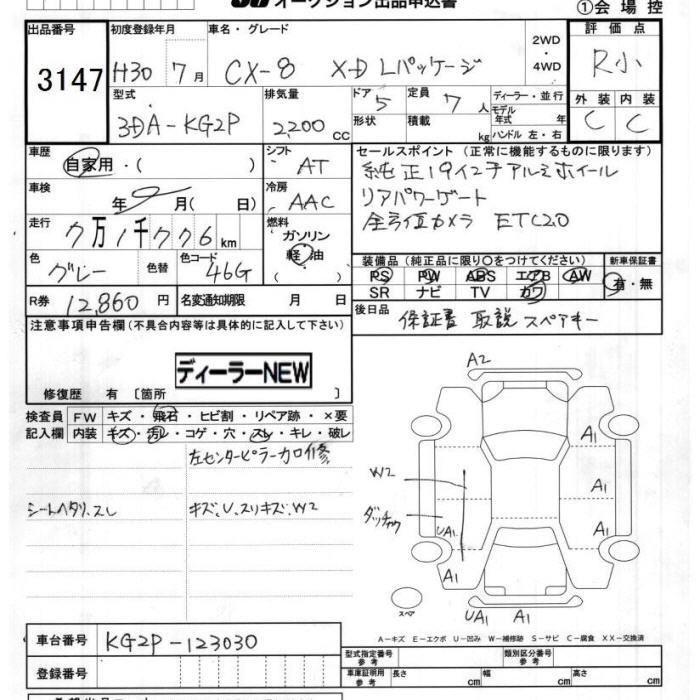 オークション出品申込書 ①会場控
出品番号 初度登録年月 車名・グレード 評価点
3147 H30 7月 CX-8 XD Lパッケージ 2WD・4WD R小
型式 排気量 ドア 5 定員 7人 ディーラー・並行 外装 内装
3DA-KG2P 2,200cc 形状 積載 kg モデル年式 年 ハンドル 左・右 C C
車歴 自家用・( ) シフト AT セールスポイント (正常に機能するものに限ります)
車検 年 9月( 日) 冷房 AAC 純正19インチアルミホイール
リアパワーゲート
走行 7万1千776km 燃料 ガソリン 軽油 ( ) 全方位カメラ ETC2.0
色 グレー 色替 色コード 46G 装備品 (純正品に限り○をつけてください) 新車保証書
PS PW ABS エアB AW 有・無
SR ナビ TV カワ
R券 12,860円 名変通知期限 月 日 後日品 保証書 取説 スペアキー
注意事項申告欄(不具合内容等は具体的に記入して下さい)
ディーラーNEW
修復歴 有 〔箇所 〕
検査員記入欄 FW キズ・飛石・ヒビ割・リペア跡・×要
内装 キズ・汚レ・コゲ・穴・スレ・キレ・破レ
左センターピラー加修
シートヘタリ、スレ キズ、U、スリキズ、W2
A2
A1
W2 A1
ダッチャク UA1 A1
A1
スペア UA1 A1
A-キズ E-エクボ U-凹み W-補修跡 S-サビ C-腐食 XX-交換済
車台番号 KG2P-123030
登録番号
型式指定番号 参考 類別区分番号 参考
車庫証明用 参考 長さ cm 幅 cm 高さ cm